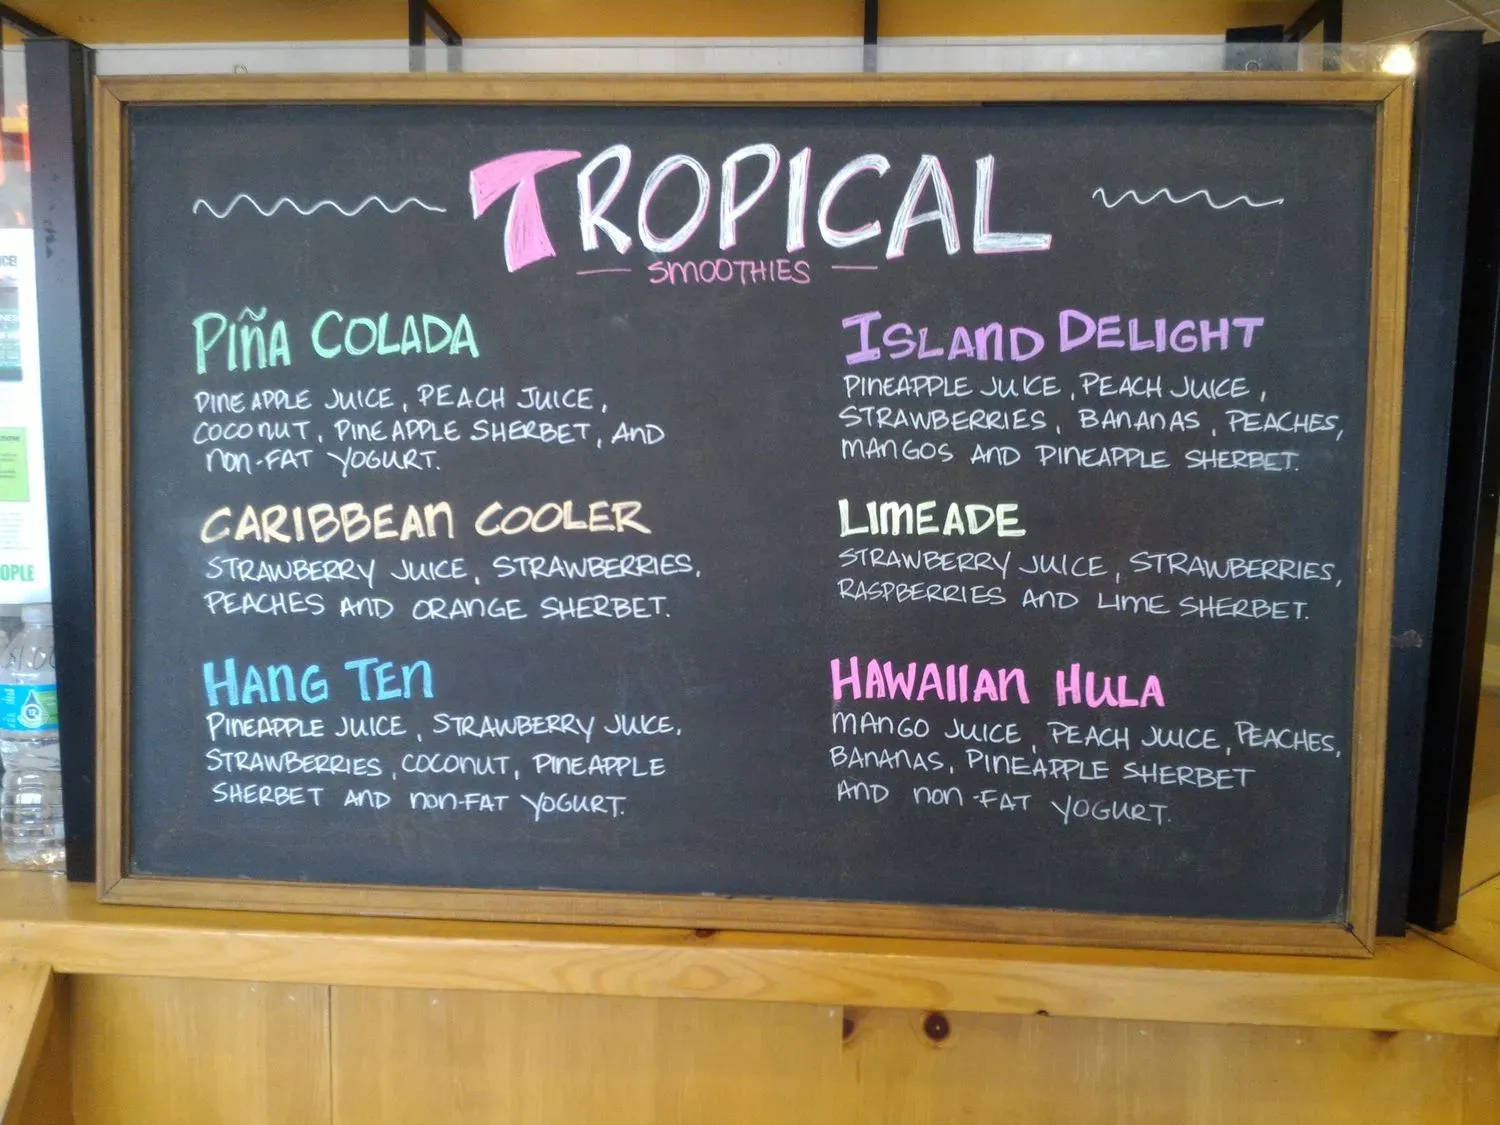 TROPICAL
SMOOTHIES
PIÑA COLADA
PINEAPPLE JUICE, PEACH JUICE,
COCONUT, PINEAPPLE SHERBET, AND
NON-FAT YOGURT.
CARIBBEAN COOLER
STRAWBERRY JUICE, STRAWBERRIES,
PEACHES AND ORANGE SHERBET.
HANG TEN
PINEAPPLE JUICE, STRAWBERRY JUICE,
STRAWBERRIES, COCONUT, PINEAPPLE
SHERBET AND NON-FAT YOGURT.
ISLAND DELIGHT
PINEAPPLE JUICE, PEACH JUICE,
STRAWBERRIES, BANANAS, PEACHES,
MANGOS AND PINEAPPLE SHERBET.
LIMEADE
STRAWBERRY JUICE, STRAWBERRIES,
RASPBERRIES AND LIME SHERBET.
HAWAIIAN HULA
MANGO JUICE, PEACH JUICE, PEACHES,
BANANAS, PINEAPPLE SHERBET
AND NON-FAT YOGURT.
OPLE